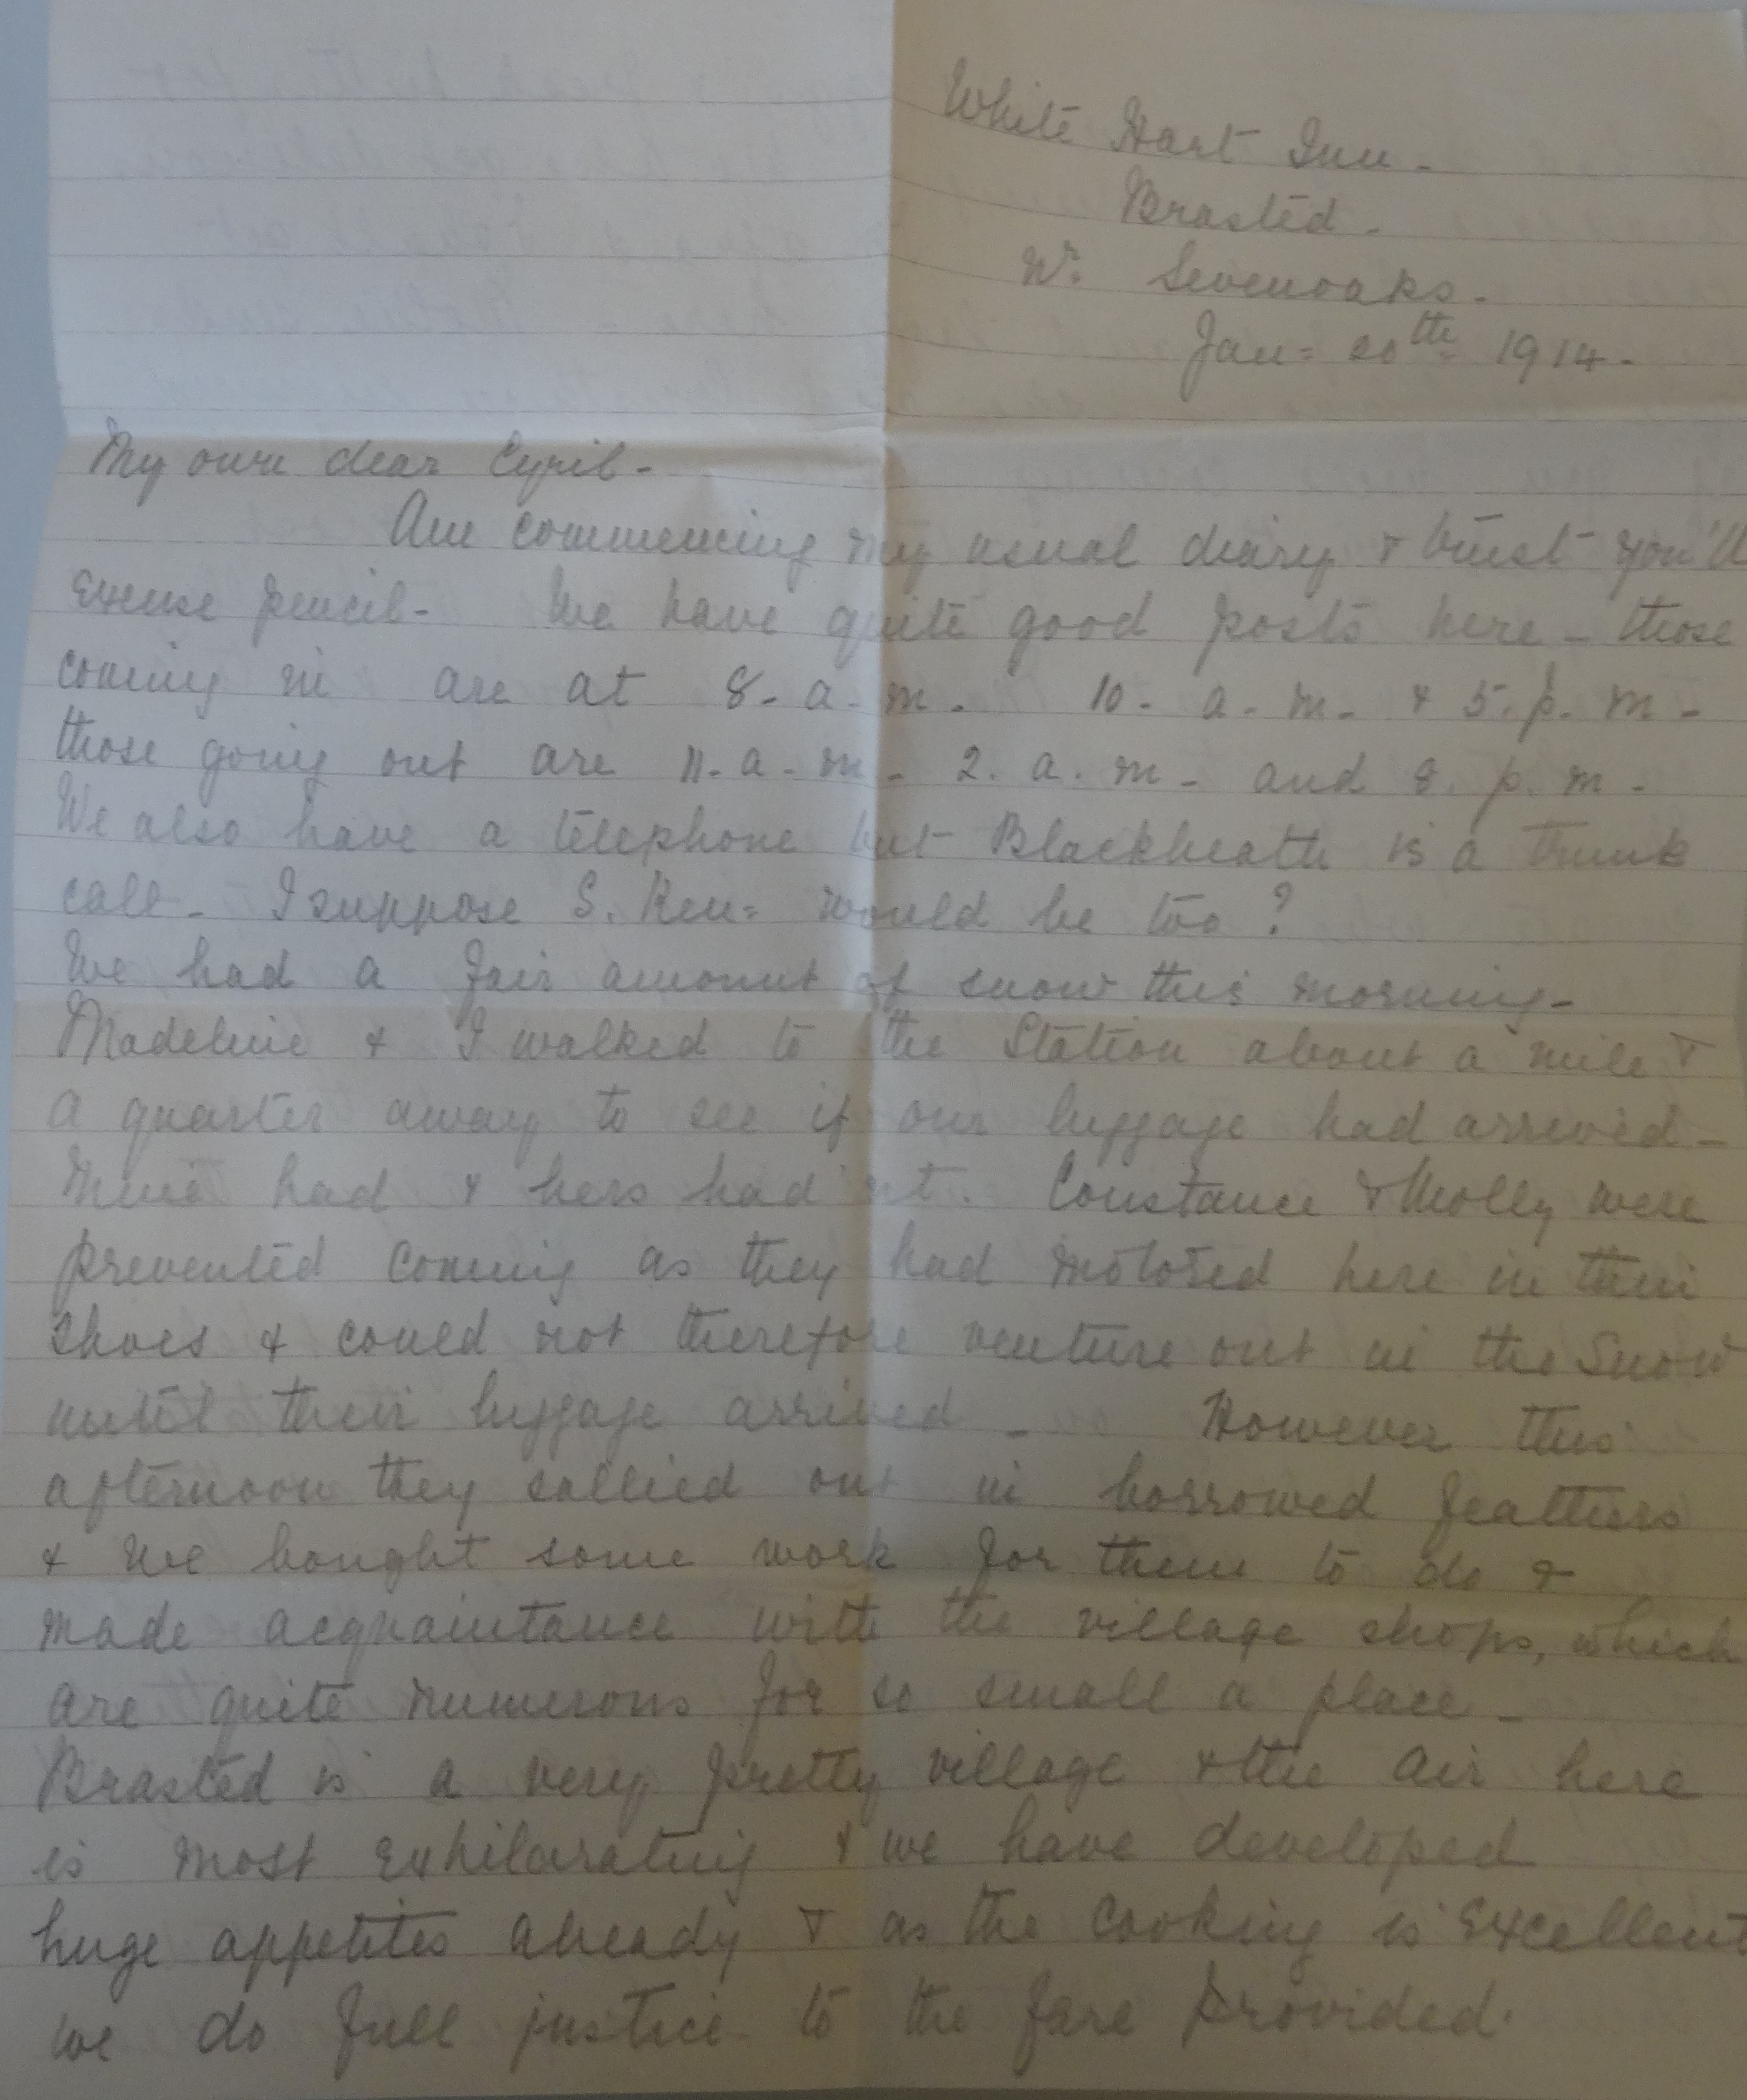 White Hart Inn -
Brasted -
Nr. Sevenoaks -
Jan = 20th 1914 -
My own dear Cyril -
Am commencing my usual diary & trust you'll
excuse pencil - We have quite good posts here - those
coming in are at 8 - a - m - 10 - a - m - & 5. p. m -
those going out are 11 - a - m - 2. a. m - and 8. p. m -
We also have a telephone but Blackheath is a trunk
call - I suppose S. Ken = would be too ?
We had a fair amount of snow this morning -
Madeline & I walked to the Station about a mile &
a quarter away to see if our luggage had arrived -
Mine had & hers hadn't. Constance & Molly were
prevented coming as they had motored here in their
shoes & could not therefore venture out in the snow
until their luggage arrived - However this
afternoon they sallied out in borrowed feathers
& we bought some work for them to do &
made acquaintance with the village shops, which
are quite numerous for so small a place -
Brasted is a very pretty village & the air here
is most exhilarating & we have developed
huge appetites already & as the cooking is excellent
we do full justice to the fare provided.